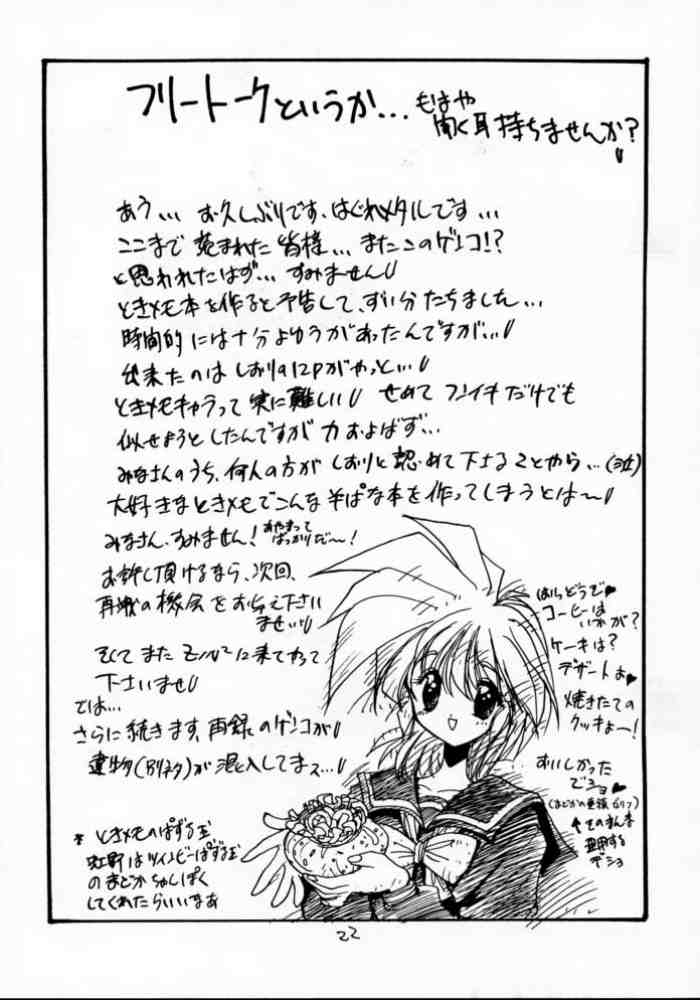 フリートークというか…もはや
聞く耳持ちませんか？
あう… お久しぶりです、はぐれメタルです…
ここまで読まれた皆様… またこのゲンコ!?
と思われたはず… すみません
ときメモ本を作ると予告して、ずい分たちました…
時間的には十分よゆうがあったんですが…
出来たのはしおりの12Pがやっと…
ときメモキャラって実に難しい せめてフンイキだけでも
似せようとしたんですが 力およばず…
みなさんのうち、何人の方がしおりと認めて下さることやら…
大好きなときメモでこんなそぱな本を作ってしまうとは〜
みなさん、すみません! あやまってばっかりだ〜!
お許し頂けるなら、次回、
再戦の機会をお与え下さい
ませ…
そしてまた に来てやって
下さいませ
では…
さらに続きます、再録のゲンコが
遺物(別ネタ)が混入してまス…
* ときメモのぱずる玉
虹野はツインビーぱずる玉
のまどかちゅしぱく
してくれたらいいなあ
はらどうで♥
コーヒーは
いかが?
ケーキは?
デザートよ♥
焼きたての
クッキよー!
すいしかった
でショ♥
(まどかの セリフ)
↑そのまんま
する
デショ
22